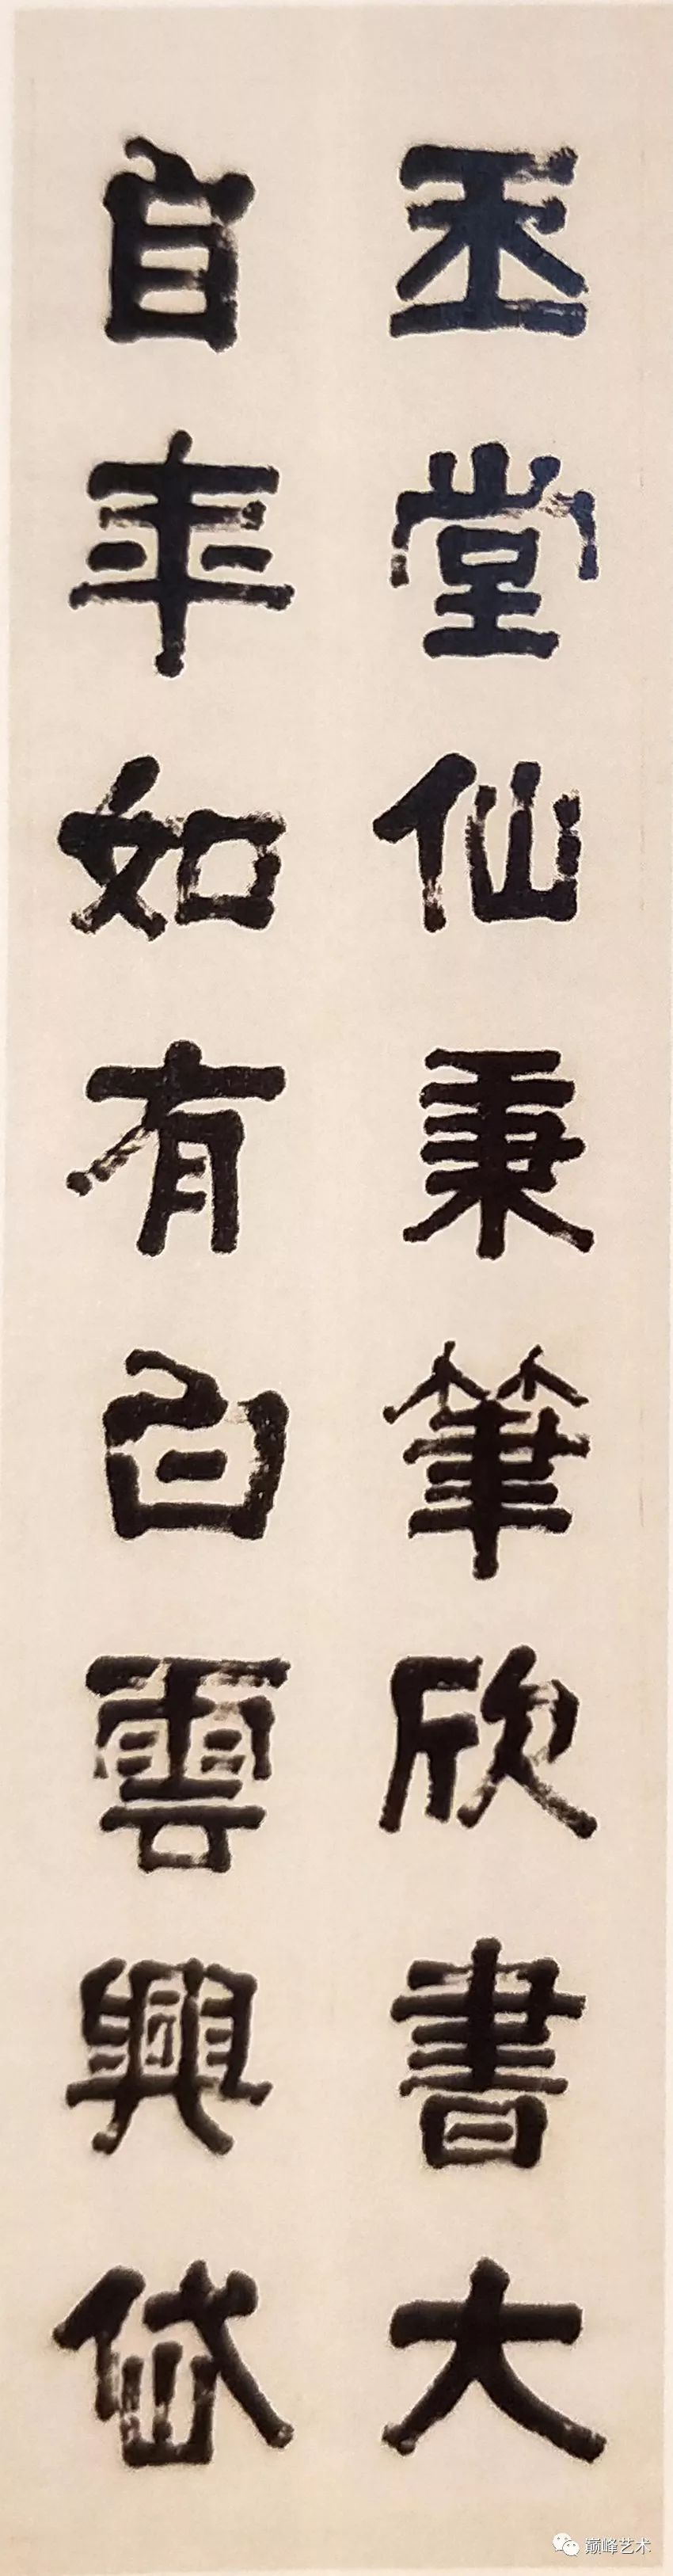 玉堂仙秉筆欣書大
自年如有白雲興岱
巅峰艺术